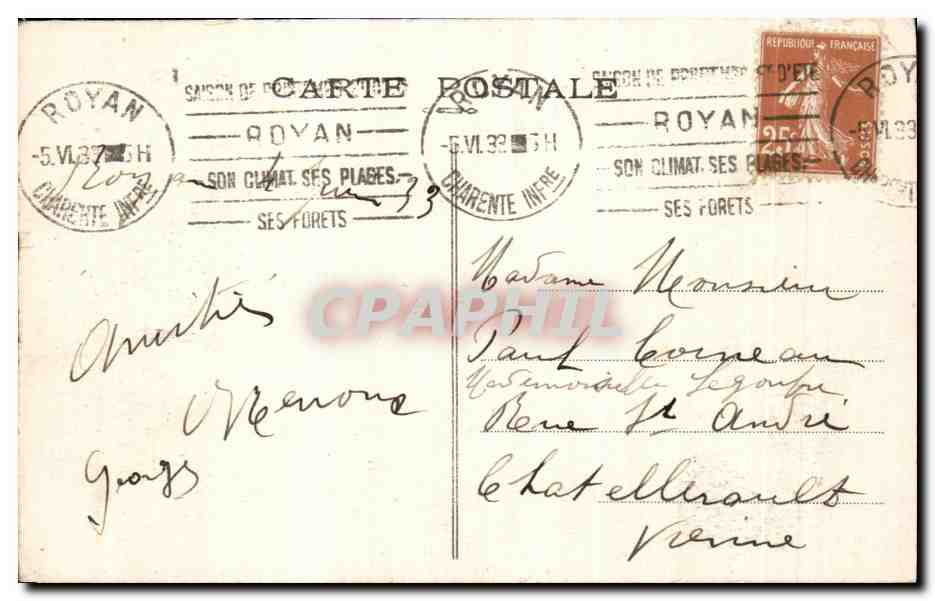 CARTE POSTALE
ROYAN
-5.VI.33 5H
CHARENTE INFRE
ROYAN
SON CLIMAT. SES PLAGES.
SES FORETS
ROYAN
-5.VI.33 5H
CHARENTE INFRE
SAISON DE D'ETE
ROYAN
SON CLIMAT. SES PLAGES.
SES FORETS
REPUBLIQUE FRANÇAISE
25c
POSTES
ROYAN
5.VI.33
Royan 4 juin 33
Amitiés
Georges
Madame Monsieur
Paul Corneau
Mademoiselle
Rue St André
Chatellerault
Vienne
CPAPHIL